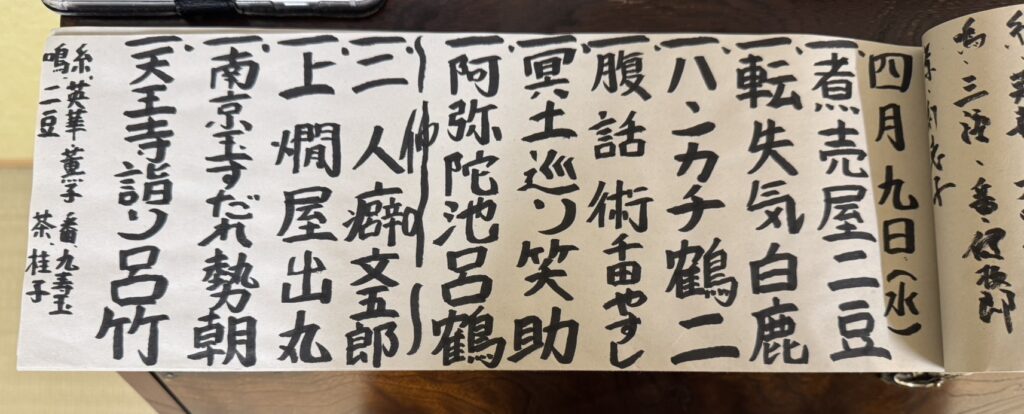 四月九日(水)
一、煮売屋二豆
一、転失気白鹿
一、ハンカチ鶴二
一、腹話術千田やすし
一、冥土巡り笑助
一、阿弥陀池呂鶴
仲
一、二人癖文五郎
一、上燗屋出丸
一、南京玉すだれ勢朝
一、天王寺詣り呂竹
糸、英華 菫子 番、九寿玉
鳴、二豆 茶、桂子